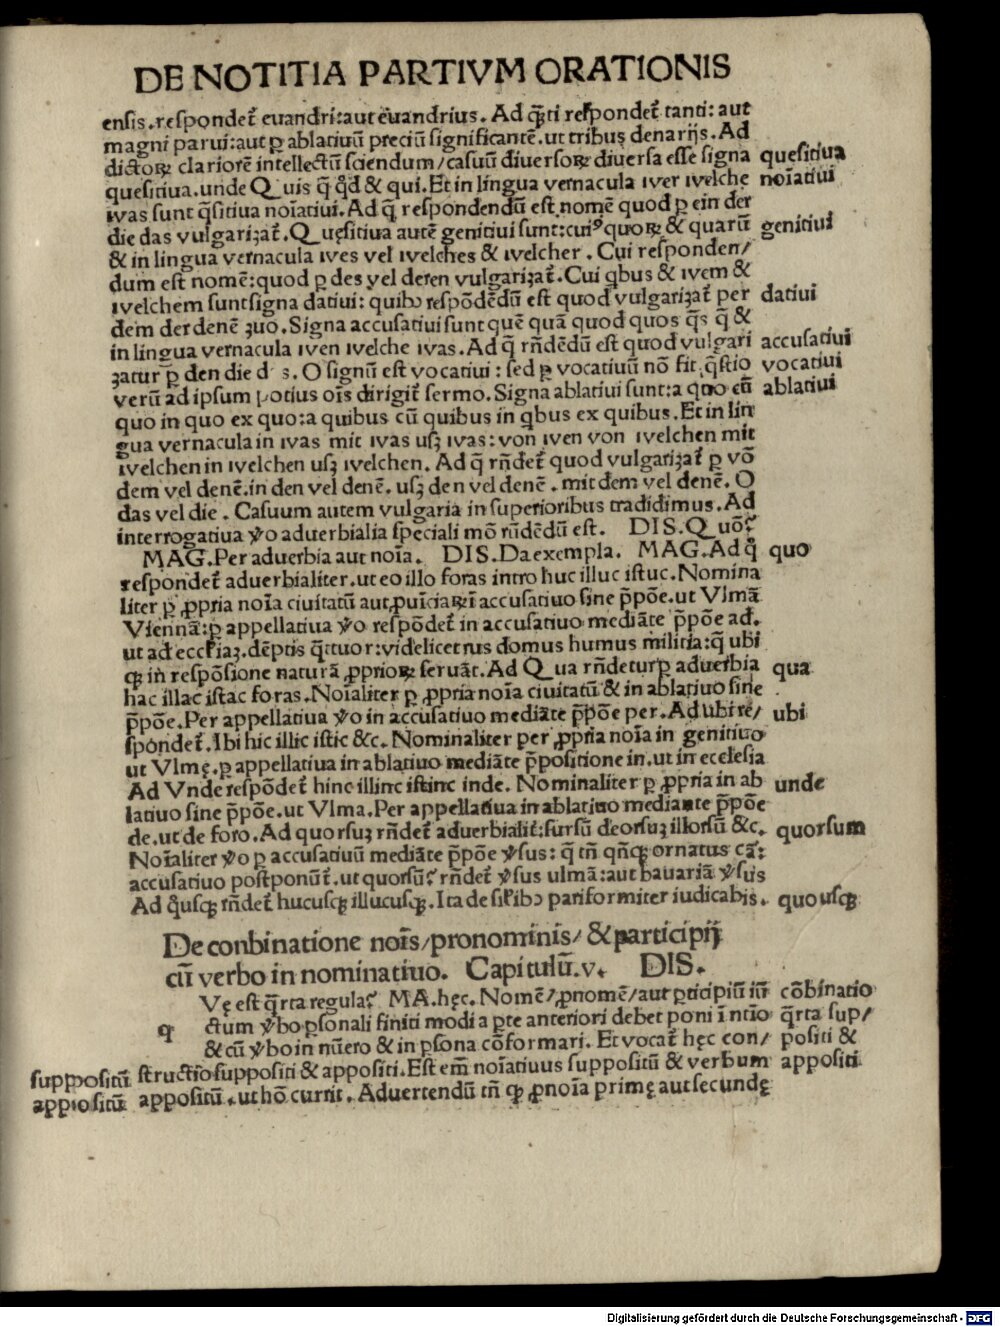 DE NOTITIA PARTIVM ORATIONIS
ensis.respondet̃ euandri:aut euandrius. Ad q̃ti respondet̃ tanti: aut
magni parui:aut ꝑ ablatiuũ preciũ significantẽ.ut tribus denarijs. Ad
dictoꝝ clariorẽ intellectũ sciendum/casuũ diuersoꝝ diuersa esse signa quesitiua
quesitiua.unde Quis q̃ qđ & qui.Et in lingua vernacula wer welche noĩatiui
was sunt q̃sitiua noĩatiui.Ad q̃ respondendũ est nomẽ quod ꝑ ein der
die das vulgarizat̃.Quęsitiua autẽ genitiui sunt:cuiꝰ quoꝝ & quarũ genitiui
& in lingua vernacula wes vel welches & welcher. Cui responden/
dum est nomẽ:quod ꝑ des vel deren vulgarizat̃.Cui qbus & wem &
welchem sunt signa datiui: quibꝫ respõdẽdũ est quod vulgarizat̃ per datiui
dem der denẽ zuo.Signa accusatiui sunt quẽ quã quod quos q̃s q̃ &
in lingua vernacula wen welche was.Ad q̃ rñdẽdũ est quod vulgari accusatiui
zatur ꝑ den die d s.O signũ est vocatiui: sed ꝑ vocatiuũ nõ fit q̃stio vocatiui
verũ ad ipsum potius oĩs dirigit̃ sermo.Signa ablatiui sunt:a quo cũ ablatiui
quo in quo ex quo:a quibus cũ quibus in qbus ex quibus.Et in lin
gua vernacula in was mit was usz was:von wen von welchen mit
welchen in welchen usz welchen. Ad q̃ rñdet̃ quod vulgarizat̃ ꝑ võ
dem vel denẽ.in den vel denẽ. usz den vel denẽ. mit dem vel denẽ.O
das vel die. Casuum autem vulgaria in superioribus tradidimus.Ad
interrogatiua ṽo aduerbialia speciali mõ rñdẽdũ est. DIS.Quõ?
MAG.Per aduerbia aut noĩa. DIS.Da exempla. MAG.Ad q̃ quo
respondet̃ aduerbialiter.ut eo illo foras intro huc illuc istuc.Nomina
liter ꝑ ꝓpria noĩa ciuitatũ aut ꝓuĩciaꝝ ĩ accusatiuo sine p̃põe.ut Vlmã
Viennã:ꝑ appellatiua ṽo respõdet̃ in accusatiuo mediãte p̃põe ad.
ut ad ecclĩaz.dẽptis q̃ttuor:videlicet rus domus humus militia:q̃ ubi
qꝫ in respõsione naturã ꝓprioꝝ seruãt.Ad Qua rñdetur ꝑ aduerbia qua
hac illac istac foras.Noĩaliter ꝑ ꝓpria noĩa ciuitatũ & in ablatiuo sine
p̃põe.Per appellatiua ṽo in accusatiuo mediãte p̃põe per.Ad ubi re/ ubi
spondet̃.Ibi hic illic istic &c.Nominaliter per ꝓpria noĩa in genitiuo
ut Vlmę.ꝑ appellatiua in ablatiuo mediãte p̃positione in.ut in ecclesia
Ad Vnde respõdet̃ hinc illinc istinc inde. Nominaliter ꝑ ꝓpria in ab unde
latiuo sine p̃põe.ut Vlma.Per appellatiua in ablatiuo mediante p̃põe
de.ut de foro.Ad quorsuz rñdet̃ aduerbialit̃:sursũ deorsuz illorsũ &c. quorsum
Noĩaliter ṽo ꝑ accusatiuũ mediãte p̃põe ṽsus: q̃ tñ qñqꝫ ornatus cã:
accusatiuo postponũt̃.ut quorsũ? rñdet̃ ṽsus ulmã:aut bauariã ṽsus
Ad q̃usqꝫ rñdet̃ hucusqꝫ illucusqꝫ.Ita de silĩbꝫ pariformiter iudicabis. quousqꝫ
De conbinatione noĩs/pronominis/ & participij
cũ verbo in nominatiuo. Capitulũ.v. DIS.
q Vę est q̃rta regula? MA.hęc.Nomẽ/ꝓnomẽ/aut ꝑticipiũ iũ cõbinatio
ctum ṽbo ꝑsonali finiti modi a ꝑte anteriori debet poni ĩ ntĩo q̃rta sup/
& cũ ṽbo in nũero & in ꝑsona cõformari. Et vocat̃ hęc con/ positi &
suppositũ structio suppositi & appositi.Est em̃ noĩatiuus suppositũ & verbum appositi
appositũ appositũ.ut hõ currit. Aduertendũ tñ ꝙ ꝓnoĩa primę aut secundę
Digitalisierung gefördert durch die Deutsche Forschungsgemeinschaft - DFG